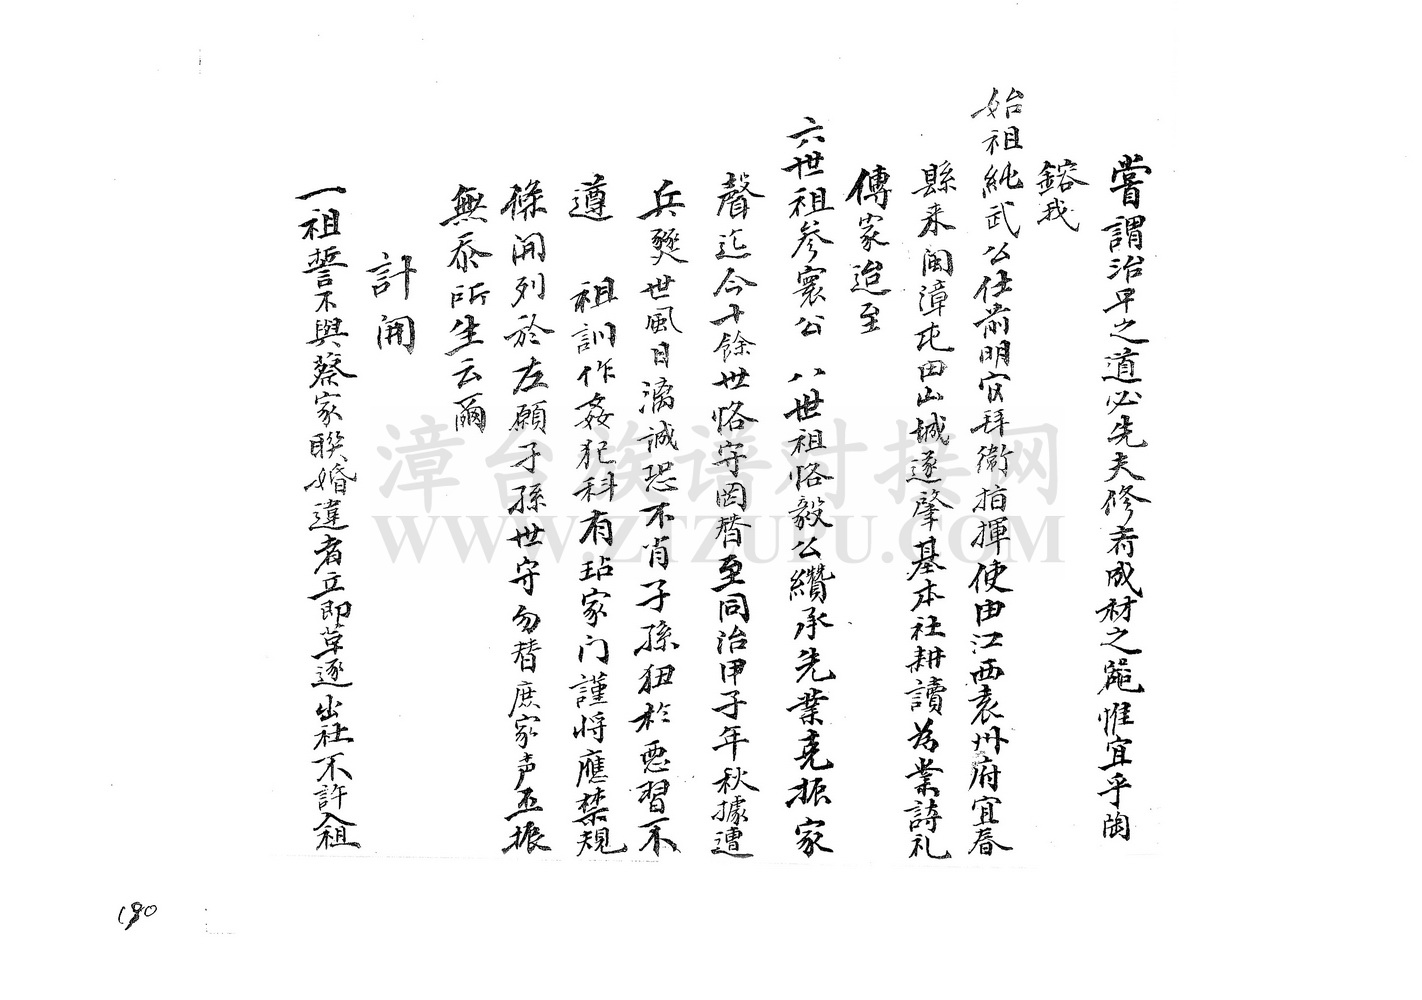 嘗謂治平之道必先夫修齊成材之器惟宜乎陶
鎔我
始祖純武公仕前明官拜衛指揮使由江西袁州府宜春
縣來閩漳屯田山城遂肇基本社耕讀為業詩礼
傳家迨至
六世祖參寰公 八世祖恪毅公纘承先業克振家
聲迄今十餘世恪守罔替至同治甲子年秋據遭
兵燹世風日漓誠恐不肖子孫狃於惡習不
遵 祖訓作姦犯科有玷家门謹将應禁規
條開列於左願子孫世守勿替庶家声丕振
無忝所生云爾
計開
一祖誓不與蔡家聯婚違者立即革逐出社不許入祖
漳台族谱对接网
WWW.ZTZUPU.COM
190